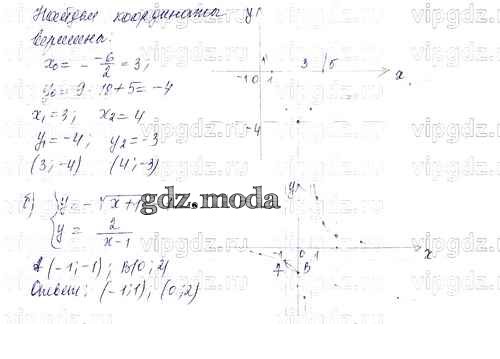 Найдем координаты
вершины:
x₀ = - -6/2 = 3;
y₀ = 9 - 18 + 5 = -4
x₁ = 3; x₂ = 4
y₁ = -4; y₂ = -3
(3; -4) (4; -3)
y
-1 0 1 3 5 x
-4
б) { y = -√x+1
y = 2/x-1
A (-1; -1); B(0; 2)
Ответ: (-1; 1); (0; 2)
y
-1 0 1 x
A B
gdz.moda
vipgdz.ru